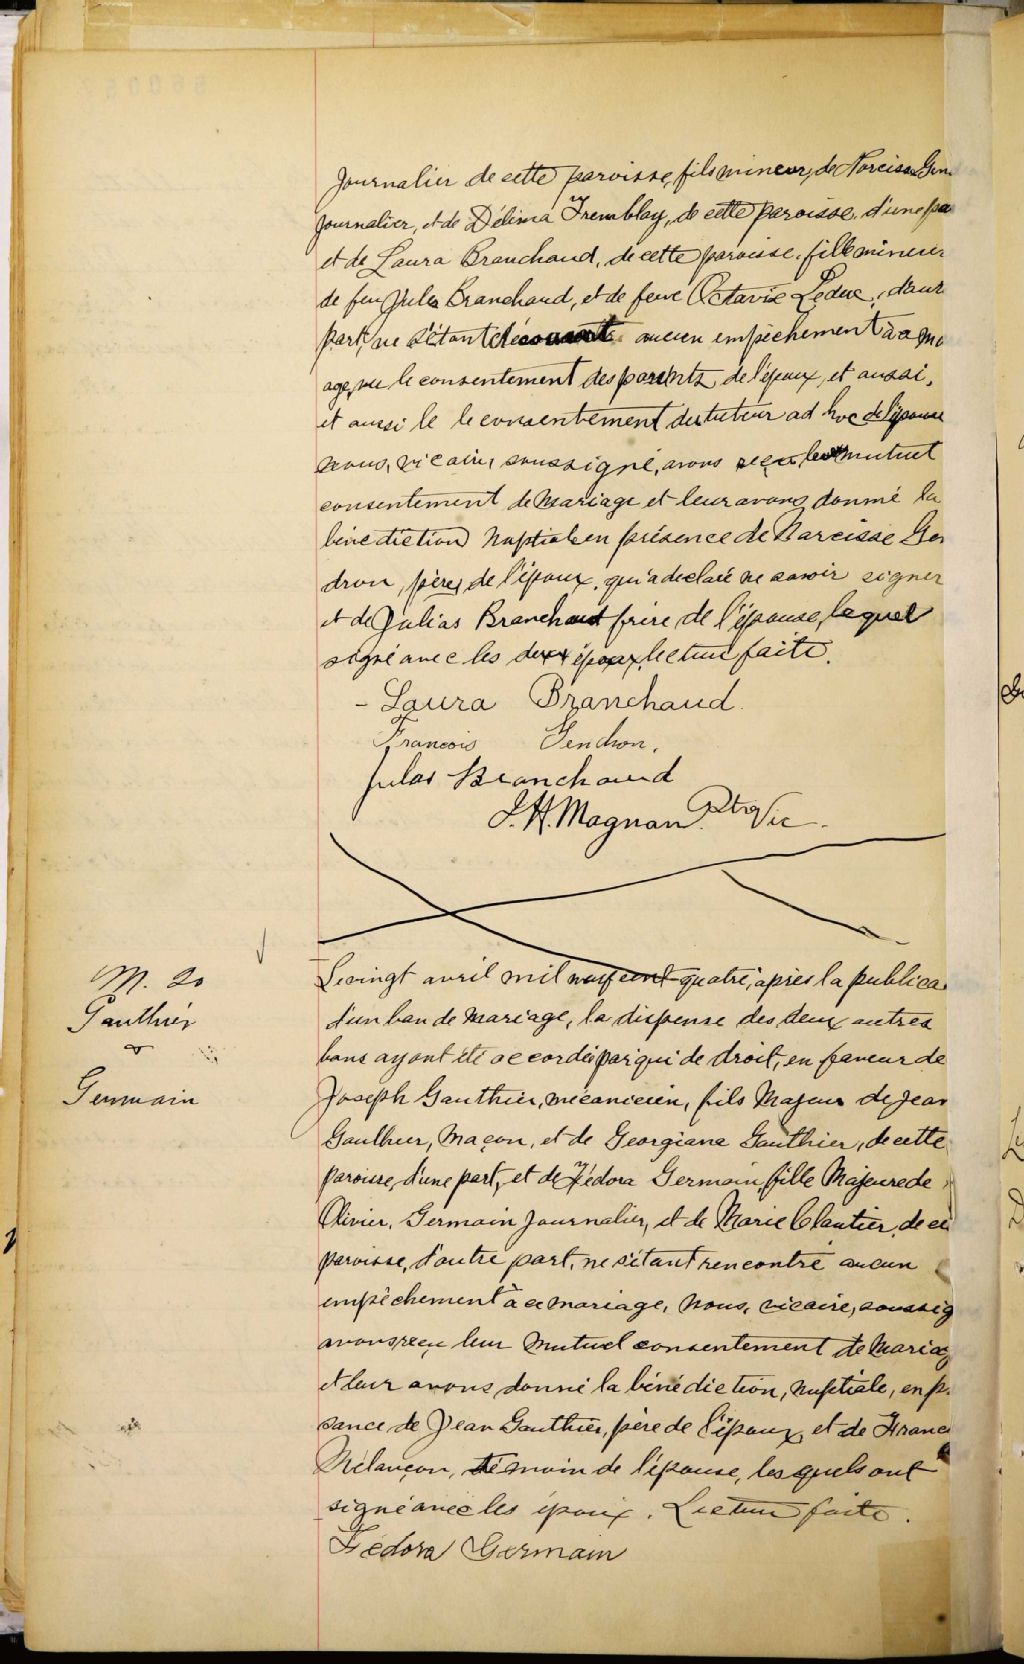 journalier de cette paroisse, fils mineur, de Narcisse Gen
journalier, et de Délima Tremblay, de cette paroisse, d'une pa
et de Laura Branchaud, de cette paroisse, fille mineur
de feu Jules Branchaud, et de feue Octavie Leduc, d'autr
part, ne s'étant aucun empêchement à ce ma
age, vu le consentement des parents de l'époux, et aussi,
et aussi le le consentement du tuteur ad hoc de l'épouse
nous, vicaire, soussigné, avons reçu leur mutuel
consentement de mariage et leur avons donné la
bénédiction nuptiale en présence de Narcisse Gen
dron, père, de l'époux, qui a declaré ne savoir signer
et de Julias Branchaud frère de l'épouse, lequel
signé avec les deux époux, lecture faite.
- Laura Branchaud.
Francois Gendron.
Julas Branchaud
J. H. Magnan Ptre Vic.
M. 20
Gauthier
&
Germain
Le vingt avril mil neuf cent quatre, après la publica
d'un ban de mariage, la dispense des deux autres
bans ayant été accordée par qui de droit, en faveur de
Joseph Gauthier, mécanicien, fils majeur de Jean
Gauthier, maçon, et de Georgiana Gauthier, de cette
paroisse, d'une part, et de Fédora Germain, fille majeure de
Olivier, Germain journalier, et de Marie Cloutier, de ce
paroisse, d'autre part, ne s'étant rencontré aucun
empêchement à ce mariage, nous, vicaire, soussig
avons reçu leur mutuel consentement de mariag
et leur avons donné la bénédiction, nuptiale, en p
sence de Jean Gauthier, père de l'époux, et de Franc
Mélançon, témoin de l'épouse, lesquels ont
signé avec les époux. Lecture faite.
Fédora Germain